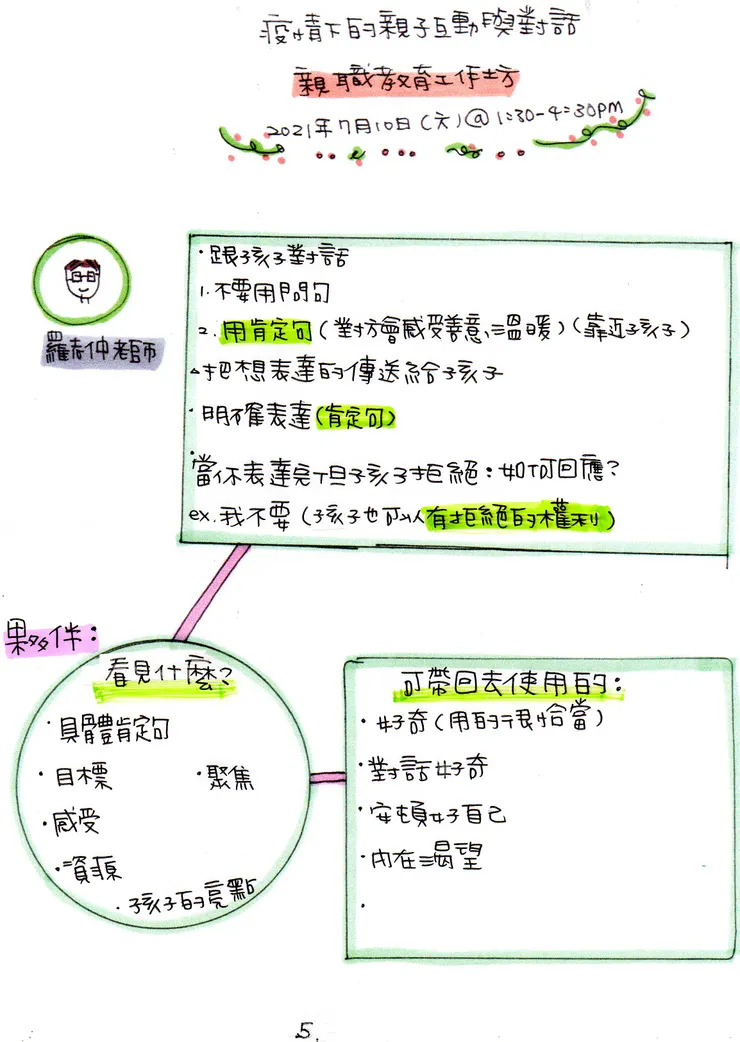 疫情下的親子互動與對話
親職教育工作坊
2021年7月10日(六)@1:30-4:30PM
羅志仲老師
·跟孩子對話
1.不要用問句
2.用肯定句(對方會感受善意、溫暖)(靠近孩子)
△把想表達的傳送給孩子
·明確表達(肯定句)
·當你表達完但孩子拒絕:如何回應?
ex.我不要(孩子也可以有拒絕的權利)
夥伴:
看見什麼?
·具體肯定句
·目標 ·聚焦
·感受
·資源
·孩子的亮點
可帶回去使用的:
·好奇(用的很恰當)
·對話好奇
·安頓好自己
·內在渴望
·
5.